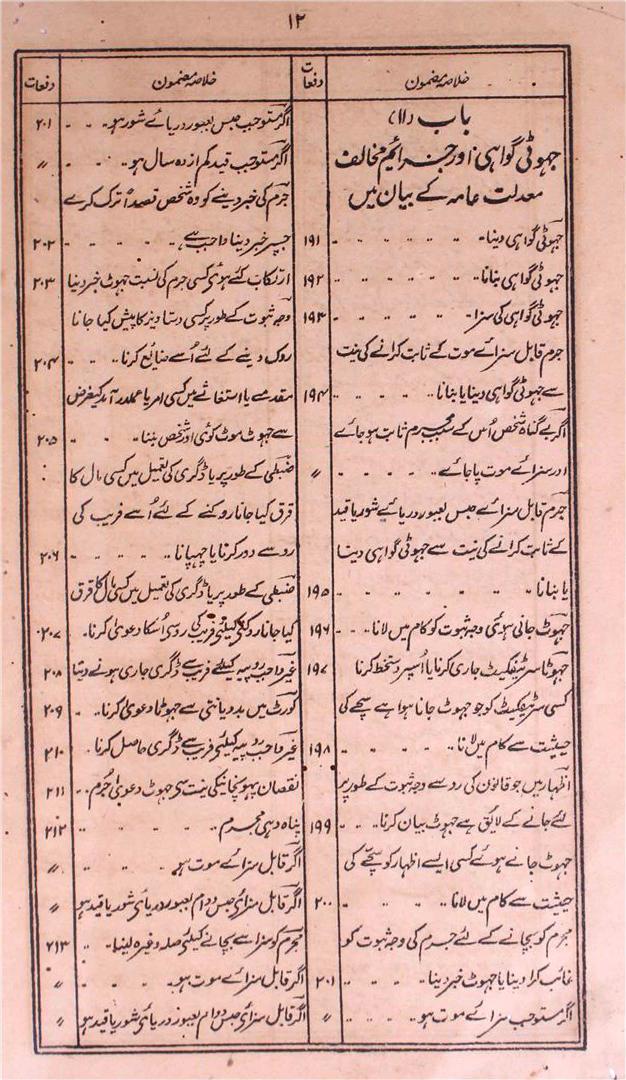 ۱۲
خلاصہ مضمون
دفعات
خلاصہ مضمون
دفعات
باب (۱۱)
جہوٹی گواہی اور جرائم مخالف
معدلت عامہ کے بیان میں
جہوٹی گواہی دینا ۱۹۱
جہوٹی گواہی بنانا ۱۹۲
جہوٹی گواہی کی سزا ۱۹۳
جرم قابل سزائے موت کے ثابت کرانے کی نیت
سے جہوٹی گواہی دینا یا بنانا ۱۹۴
اگر بے گناہ شخص اُس کے سبب مجرم ثابت ہو جائے
اور سزائے موت پا جائے 〃
جرم قابل سزائے حبس بعبور دریائے شور یا قید
کے ثابت کرانے کی نیت سے جہوٹی گواہی دینا
یا بنانا ۱۹۵
جہوٹ جانی ہوئی وجہ ثبوت کو کام میں لانا ۱۹۶
جہوٹا سرٹیفکیٹ جاری کرنا یا اُسپر دستخط کرنا ۱۹۷
کسی سرٹیفکیٹ کو جو جہوٹ جانا ہوا ہے سچے کی
حیثیت سے کام میں لانا ۱۹۸
اظہار میں جو قانون کی رو سے وجہ ثبوت کے طور پر
لئے جانے کے لائق ہے جہوٹ بیان کرنا ۱۹۹
جہوٹ جانے ہوئے کسی ایسے اظہار کو سچے کی
حیثیت سے کام میں لانا ۲۰۰
مجرم کو بچانے کے لئے جرم کی وجہ ثبوت کو
غائب کرا دینا یا جہوٹ خبر دینا ۲۰۱
اگر مستوجب سزائے موت ہو 〃
اگر مستوجب حبس بعبور دریائے شور ہو ۲۰۱
اگر مستوجب قید کم از دہ سال ہو 〃
جرم کی خبر دینے کو وہ شخص قصداً ترک کرے
جسپر خبر دینا واجب ہے ۲۰۲
ارتکاب کئے ہوئی کسی جرم کی نسبت جہوٹ خبر دینا ۲۰۳
وجہ ثبوت کے طور پر کسی دستاویز کا پیش کیا جانا
روک دینے کے لئے اُسے ضائع کرنا ۲۰۴
مقدمے یا استغاثے میں کسی امر یا عملدرآمد کیغرض
سے جہوٹ موٹ کوئی اور شخص بننا ۲۰۵
ضبطی کے طور پر یا ڈگری کی تعمیل میں کسی مال کا
قرق کیا جانا روکنے کے لئے اُسے فریب کی
رو سے دور کرنا یا چہپانا ۲۰۶
ضبطی کے طور پر یا ڈگری کی تعمیل میں کسی مال کا قرق
کیا جانا روکنے کیلئے فریب کی رو سی اُسکا دعویٰ کرنا ۲۰۷
غیر واجب روپیہ کیلئے فریب سے ڈگری جاری ہونے دینا ۲۰۸
کورٹ میں بددیانتی سے جہوٹا دعویٰ کرنا ۲۰۹
غیر واجب روپیہ کیلئی فریب سے ڈگری حاصل کرنا ۲۱۰
نقصان پہونچانیکی نیت سی جہوٹ دعوی جُرم ۲۱۱
پناہ دہی مجرم ۲۱۲
اگر قابل سزائے موت ہو 〃
اگر قابل سزائی حبس دوام بعبور دریائی شور یا قید ہو 〃
مجرم کو سزا سے بچانے کیلئی صلہ وغیرہ لینا ۲۱۳
اگر قابل سزائے موت ہو 〃
اگر قابل سزائی حبس دوام بعبور دریائی شور یا قید ہو 〃